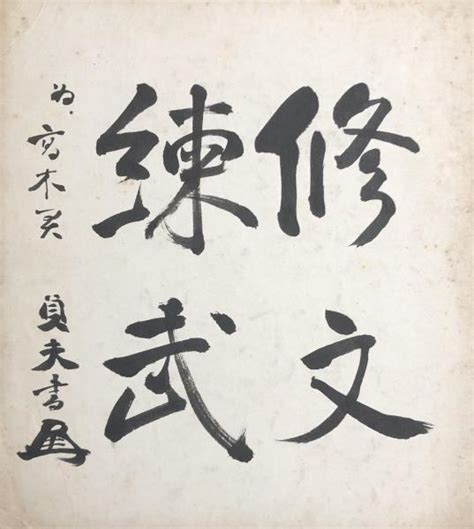 修文
練武
為高木君
貞夫書